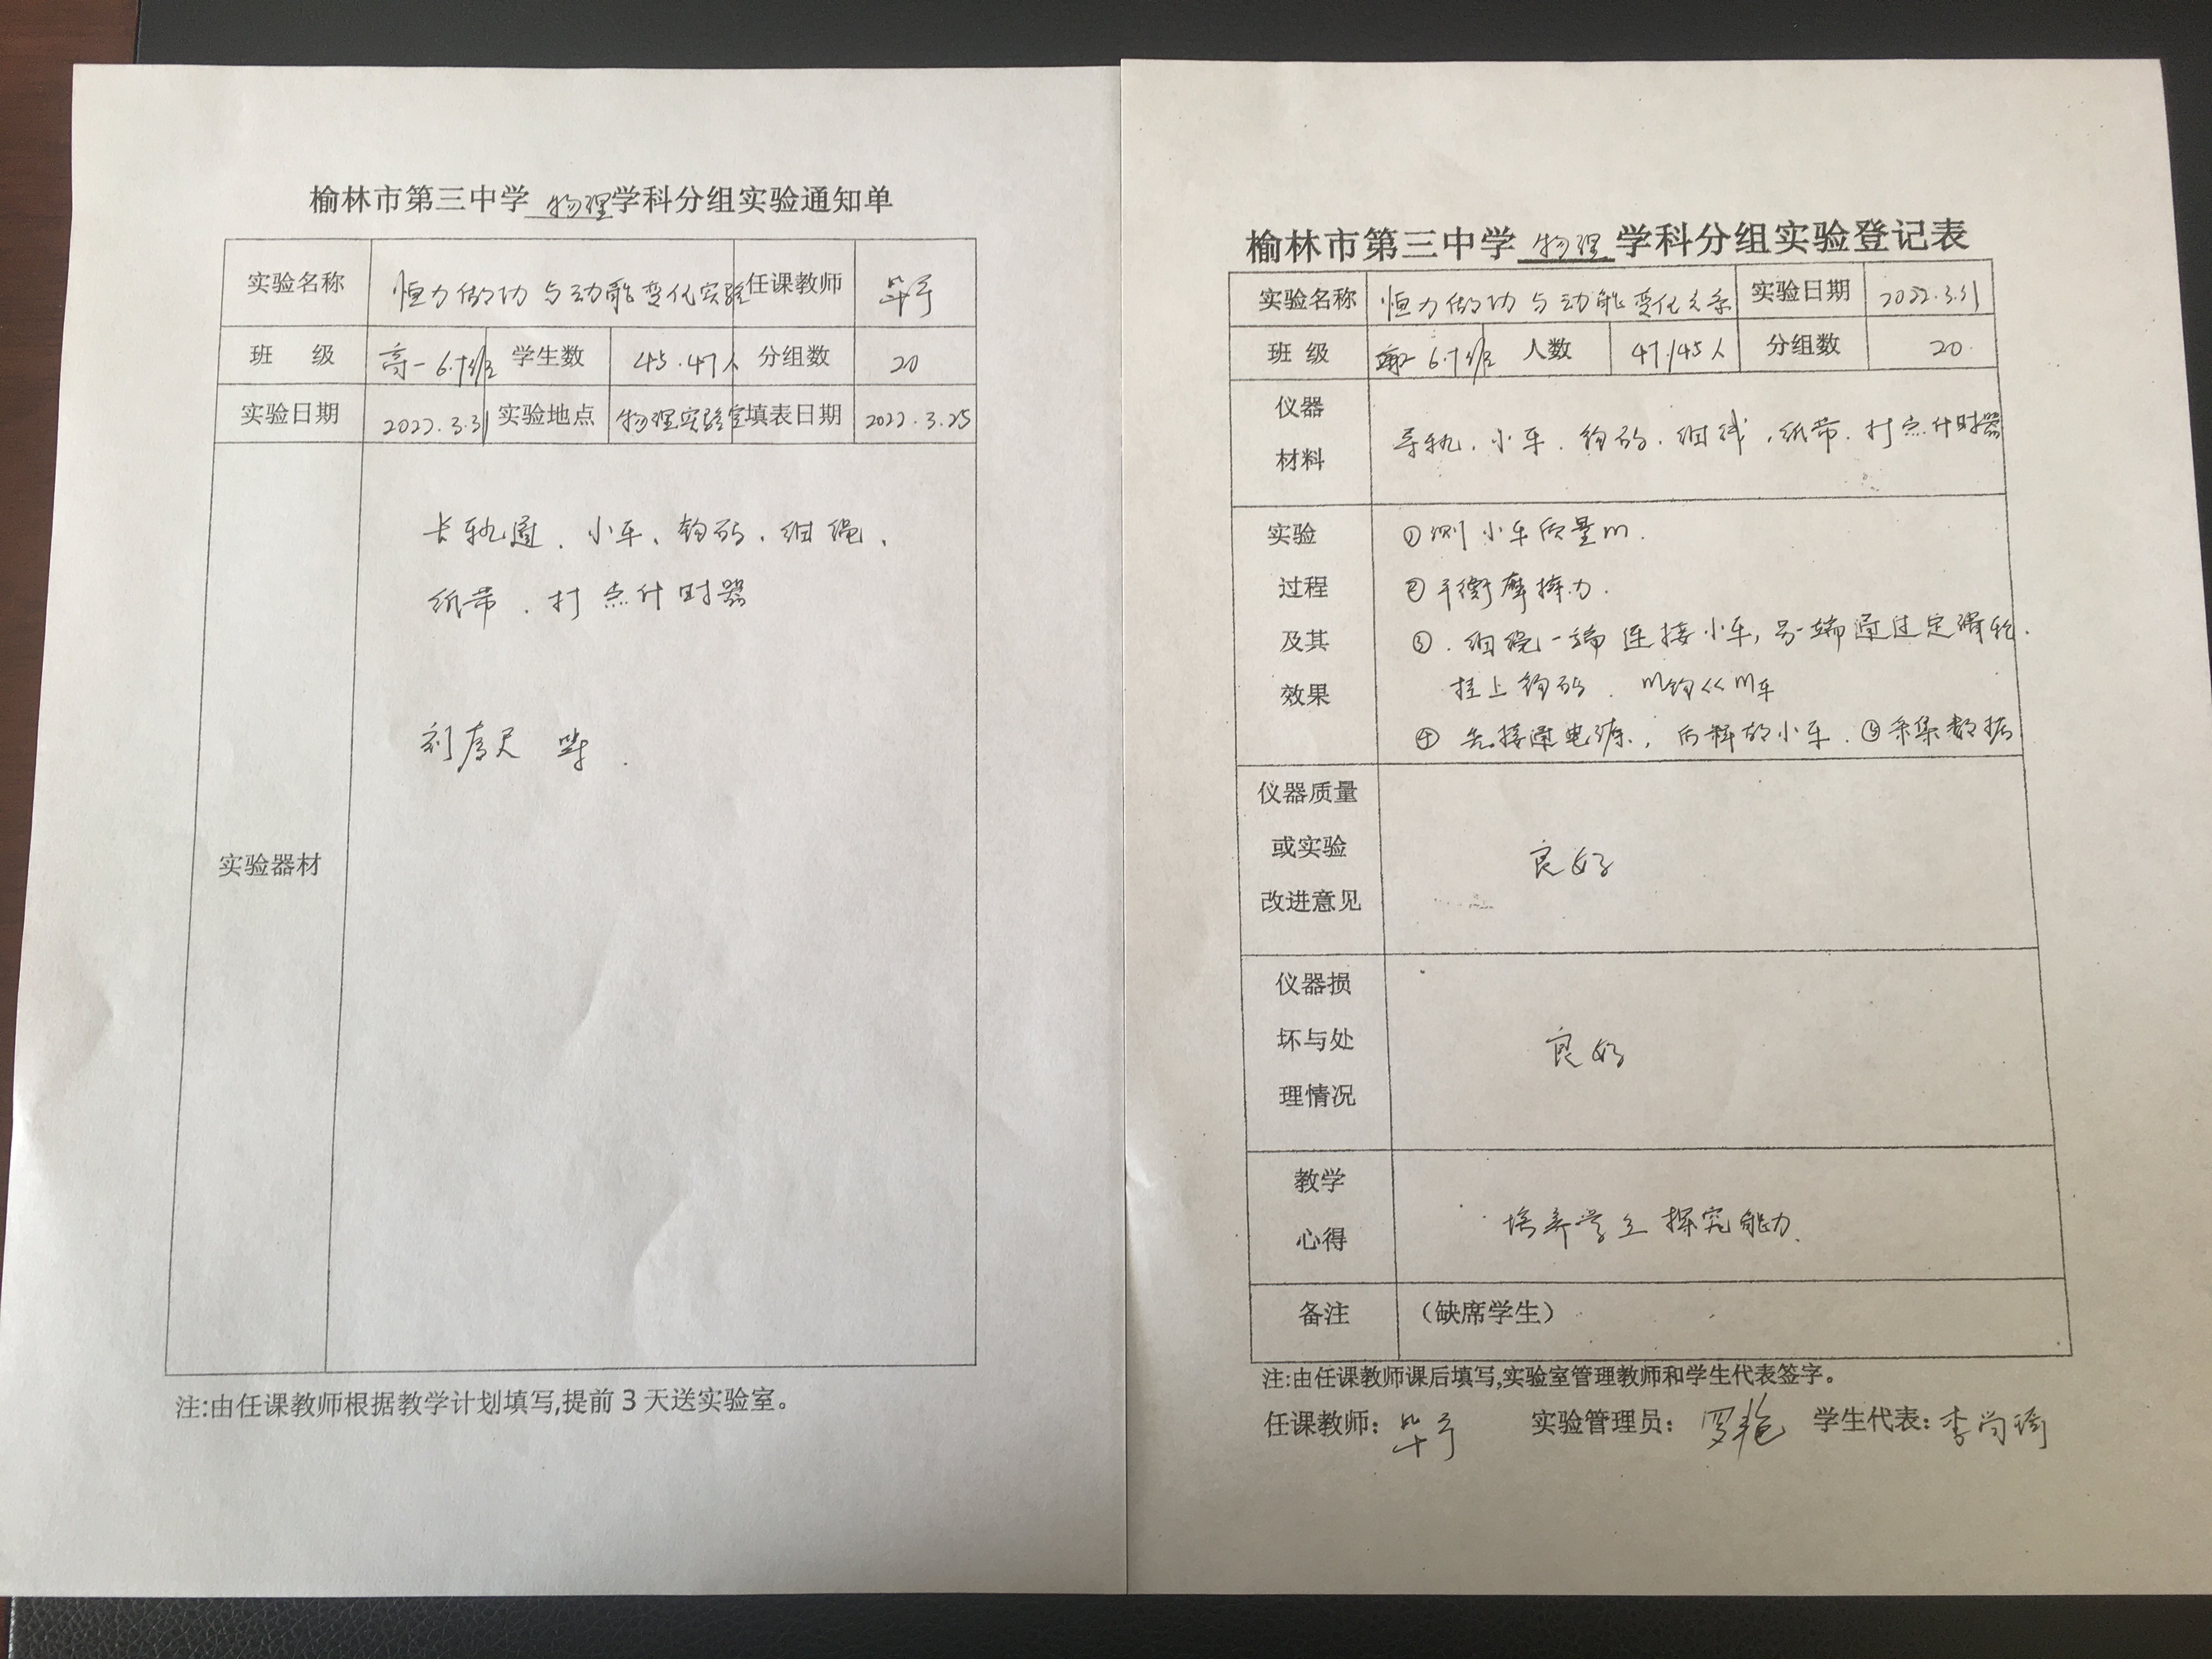 榆林市第三中学 物理 学科分组实验通知单
实验名称 恒力做功与动能变化实验 任课教师 毕于
班 级 高一6.7班 学生数 45.47人 分组数 20
实验日期 2022.3.31 实验地点 物理实验室 填表日期 2022.3.25
实验器材
长轨道、小车、钩码、细绳、
纸带、打点计时器
刻度尺 等.
注:由任课教师根据教学计划填写,提前3天送实验室。
榆林市第三中学 物理 学科分组实验登记表
实验名称 恒力做功与动能变化关系 实验日期 2022.3.31
班 级 6.7班 人数 47/45人 分组数 20.
仪器
材料
导轨、小车、钩码、细线、纸带、打点计时器
实验 ①测小车质量m.
过程 ②平衡摩擦力.
及其 ③.细绳一端连接小车,另一端通过定滑轮.
效果 挂上钩码. m钩<<m车
④ 先接通电源, 后释放小车. ⑤采集数据
仪器质量
或实验
改进意见
良好
仪器损
坏与处
理情况
良好
教学
心得
培养学生探究能力.
备注 (缺席学生)
注:由任课教师课后填写,实验室管理教师和学生代表签字。
任课教师: 毕于 实验管理员: 罗艳 学生代表: 李尚